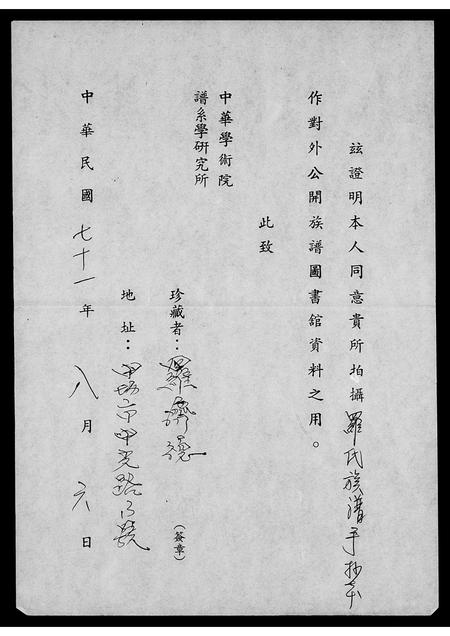 茲證明本人同意貴所拍攝羅氏族譜手抄本
作對外公開族譜圖書館資料之用。
此致
中華學術院
譜系學研究所
珍藏者：羅濟 (簽章)
地址：中光路 號
中華民國七十一年八月六日